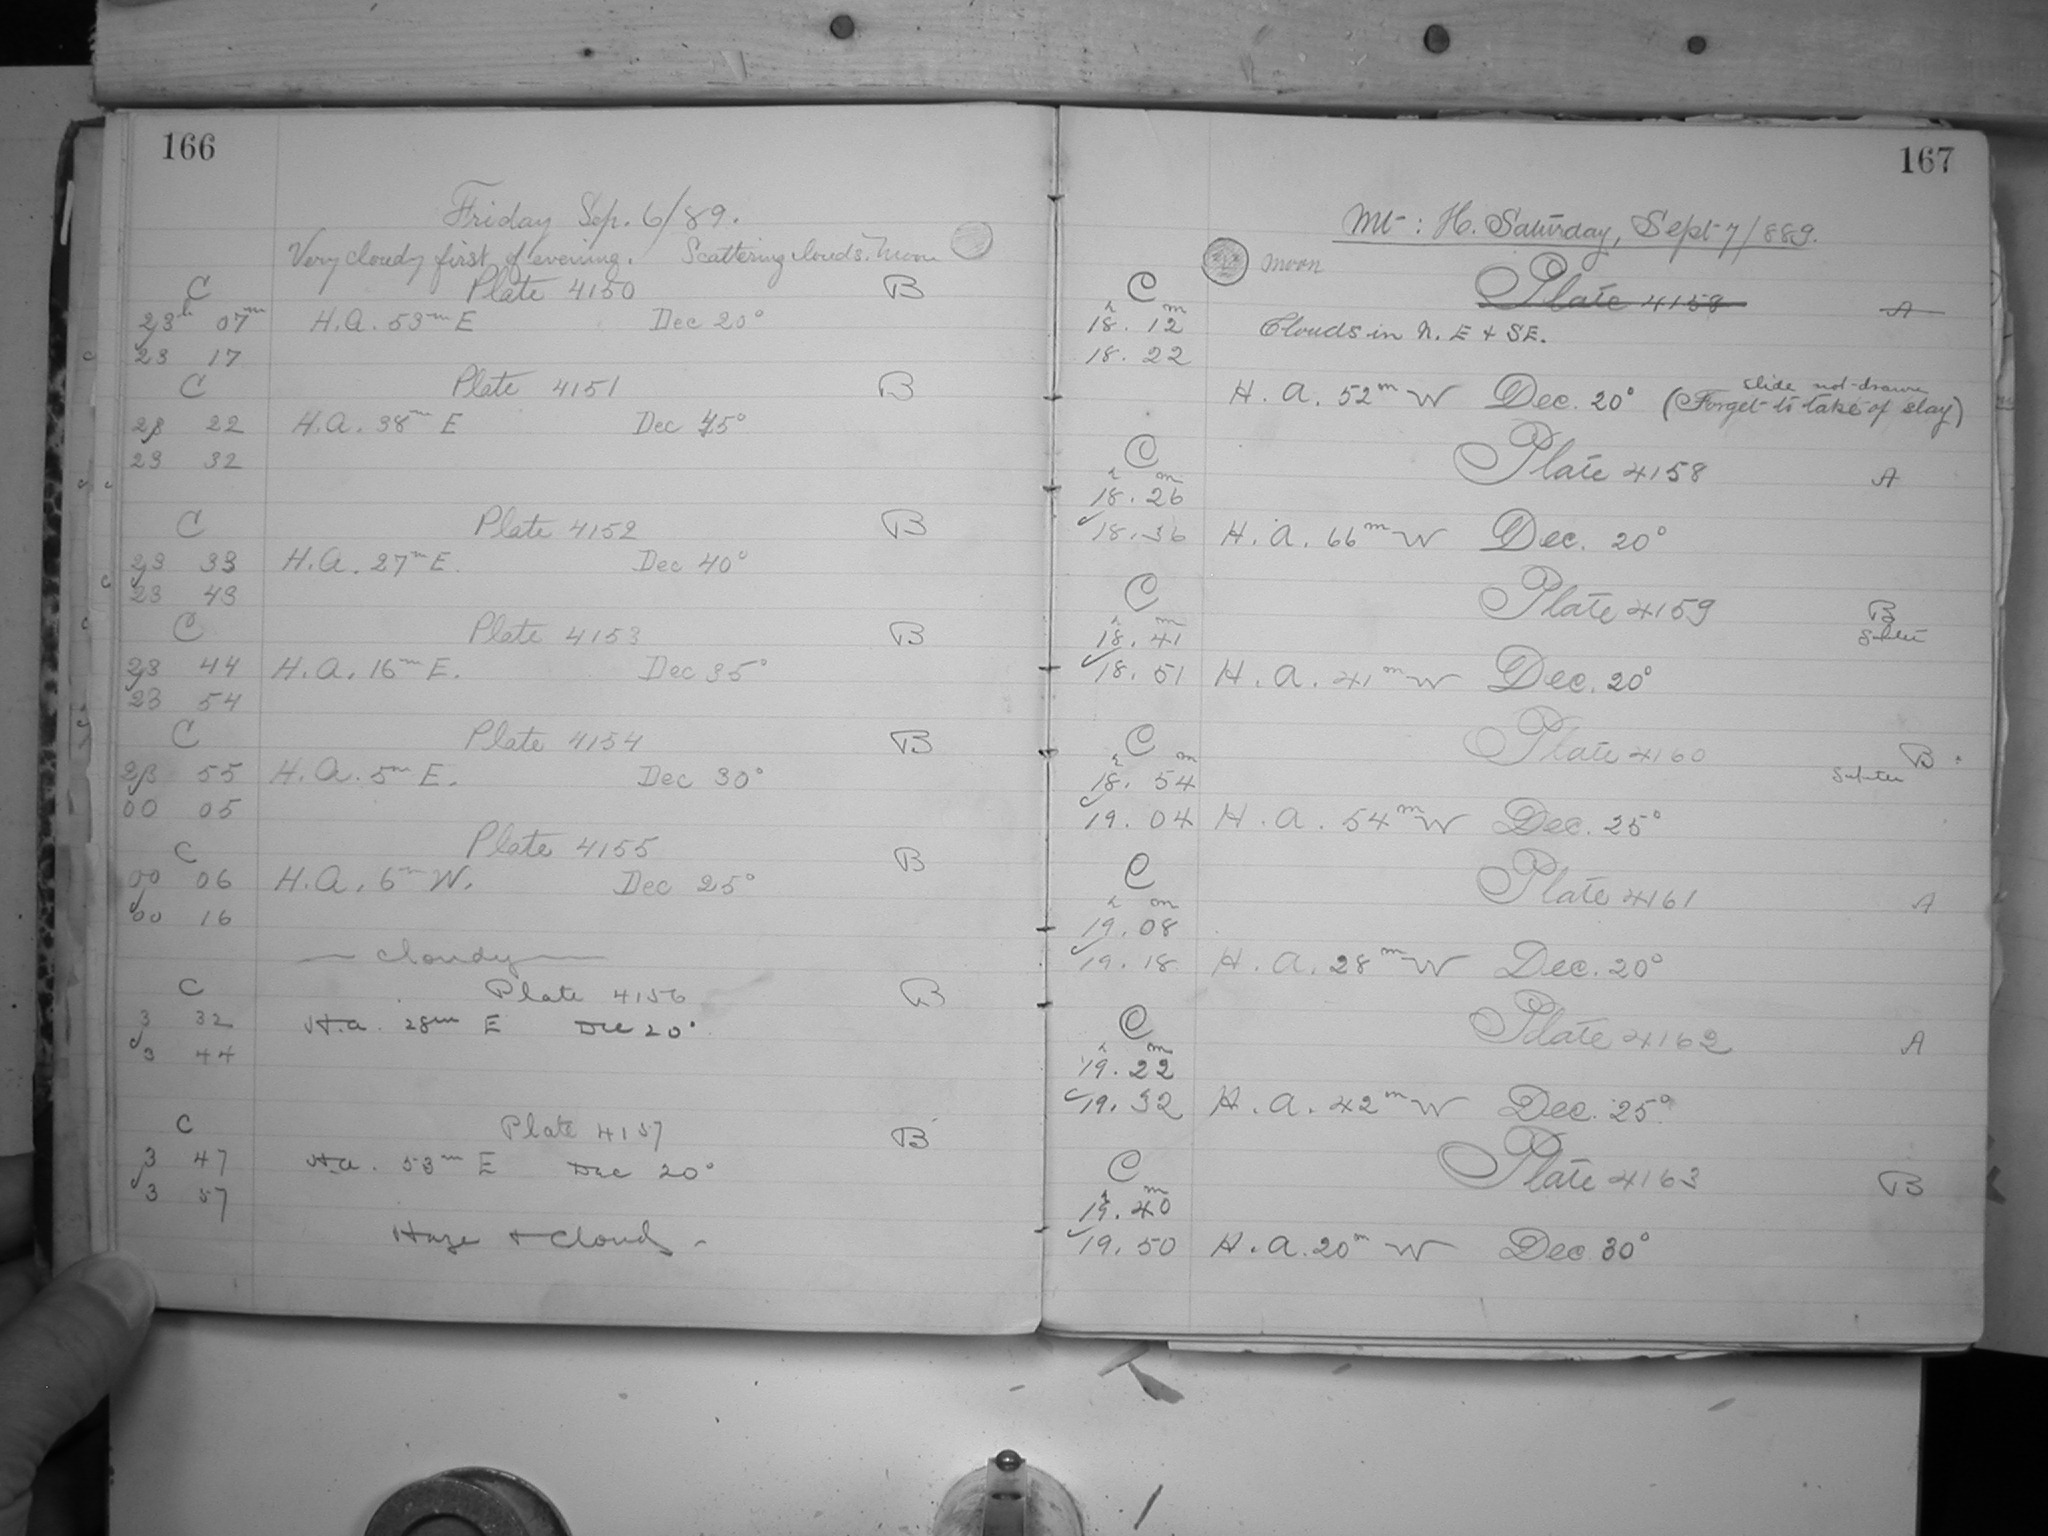 166
Friday Sep. 6/89.
Very cloudy first of evening. Scattering clouds. Moon
C Plate 4150 B
23h 07m H.A. 53m E Dec 20°
23 17
C Plate 4151 B
23 22 H.A. 38m E Dec 45°
23 32
C Plate 4152 B
23 33 H.A. 27m E. Dec 40°
23 43
C Plate 4153 B
23 44 H.A. 16m E. Dec 35°
23 54
C Plate 4154 B
23 55 H.A. 5m E. Dec 30°
00 05
C Plate 4155 B
00 06 H.A. 6m W. Dec 25°
00 16
— cloudy —
C Plate 4156 B
3 32 H.a. 28m E Dec 20°
3 44
C Plate 4157 B
3 47 H.a. 53m E Dec 20°
3 57
Haze + Clouds -
167
Mt: H. Saturday, Sept 7/889.
moon
C Plate 4158 A
h m
18. 12 Clouds in N. E + SE.
18. 22
slide not drawn
H. A. 52m W Dec. 20° (Forget to take of slay)
C Plate 4158 A
h m
18. 26
18. 36 H. A. 66m W Dec. 20°
C Plate 4159 B
h m
18. 41
18. 51 H. A. 41m W Dec. 20°
C Plate 4160 B
h m
18. 54
19. 04 H. A. 54m W Dec. 25°
C Plate 4161 A
h m
19. 08
19. 18 H. A. 28m W Dec. 20°
C Plate 4162 A
h m
19. 22
19. 32 H. A. 42m W Dec. 25°
C Plate 4163 B
h m
19. 40
19. 50 H. A. 20m W Dec 30°